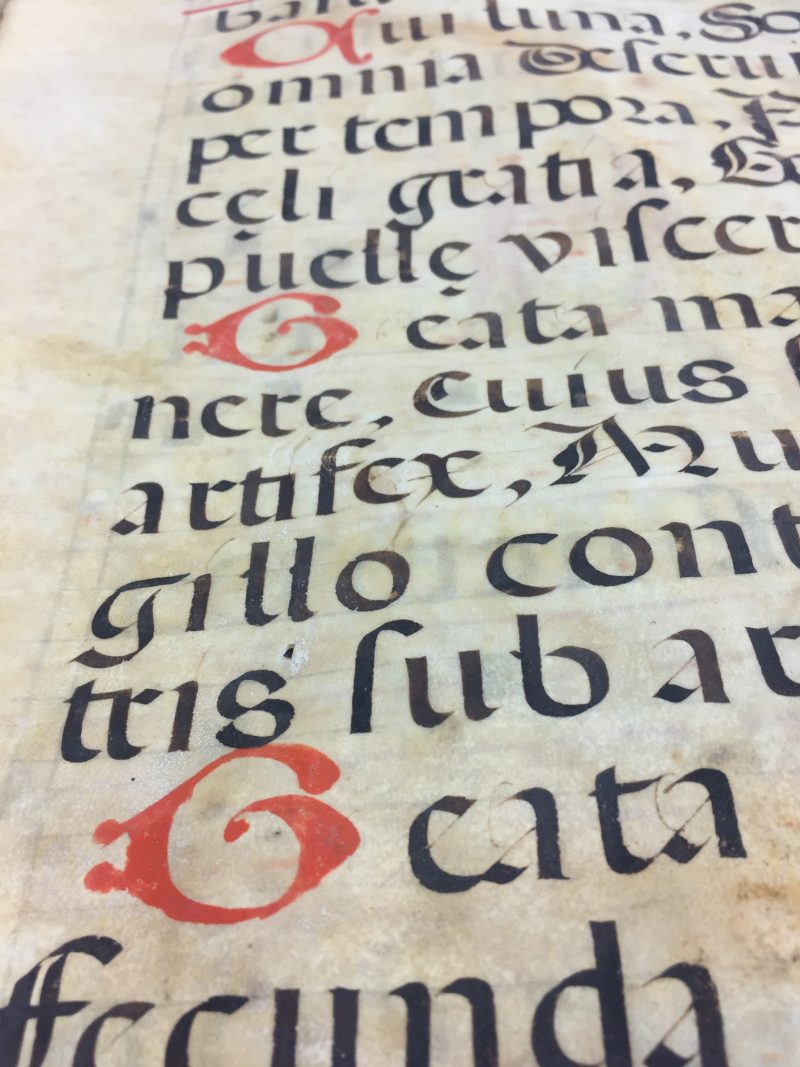 Cui luna, So
omnia deserui
per tempora, P
cęli gratia, Ge
puellę viscer
Beata ma
nere, Cuius s
artifex, Mu
gillo cont
tris sub ar
Beata
ffecunda